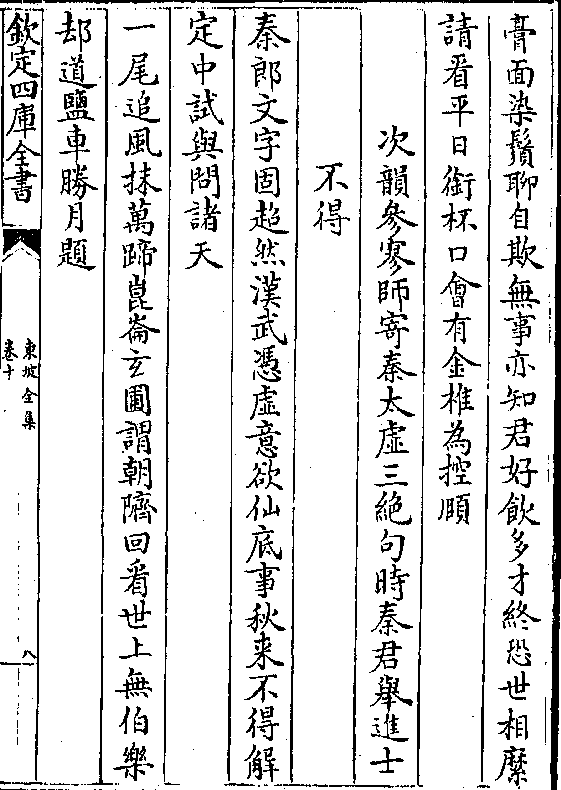 膏面染鬚聊自欺無事亦知君好飲多才終恐世相縻
請看平日銜杯口會有金椎為控頤
次韻參寥師寄秦太虛三絶句時秦君舉進士
不得
秦郎文字固超然漢武憑虛意欲仙底事秋来不得解
定中試與問諸天
一尾追風抹萬蹄崑崙玄圃謂朝隮回看世上無伯樂
却道鹽車勝月題
欽定四庫全書
東坡全集
卷十
八